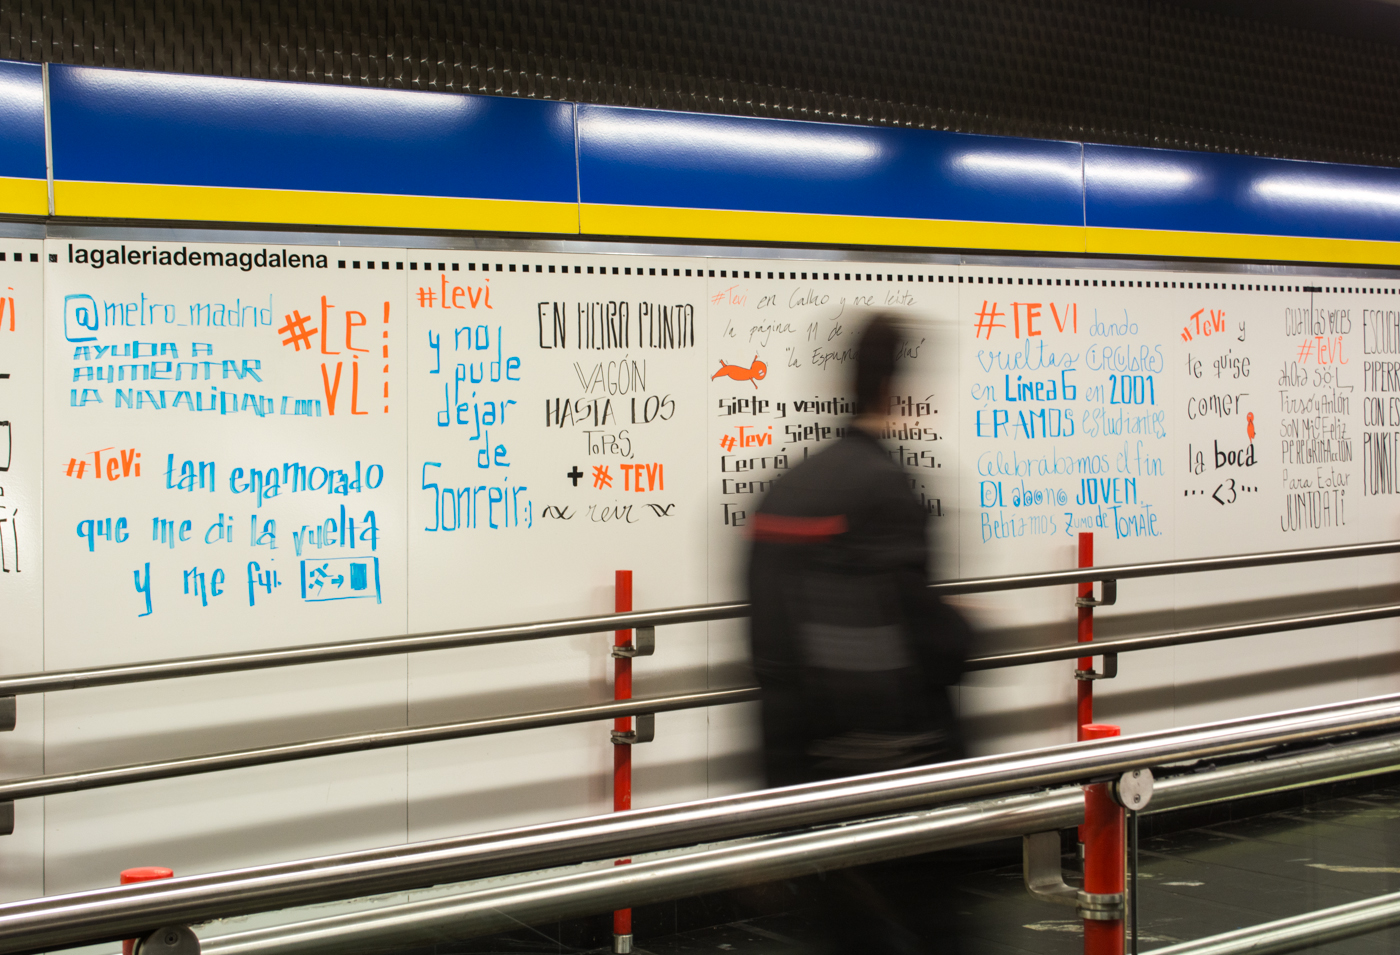 lagaleriademagdalena
@metro_madrid
AYUDA A
AUMENTAR
LA NATALIDAD con
#te
vi!
#Tevi tan enamorado
que me di la vuelta
y me fui.
#tevi
y no
pude
dejar
de
Sonreir:)
EN HORA PUNTA
VAGÓN
HASTA LOS
TOPES,
+ #TEVI
reir
#Tevi en Callao y me leíste
la página 11 de...
"la Espuma días"
Siete y Pitó.
#Tevi Siete y
Cerró
Te
#TEVI dando
vueltas CiRCULaRES
en Línea 6 en 2001
ÉRAMOS estudiantes.
Celebrábamos el fin
DEL abono JOVEN.
Bebíamos Zumo de TOMATE.
#TeVi y
te quise
comer
la boca
... <3...
cuantas veces
#TeVi
ahora soi
Tirso y Antón
SON Mi Feliz
PEREGRINACIÓN
Para Estar
JUNTO A Ti!
CON ES